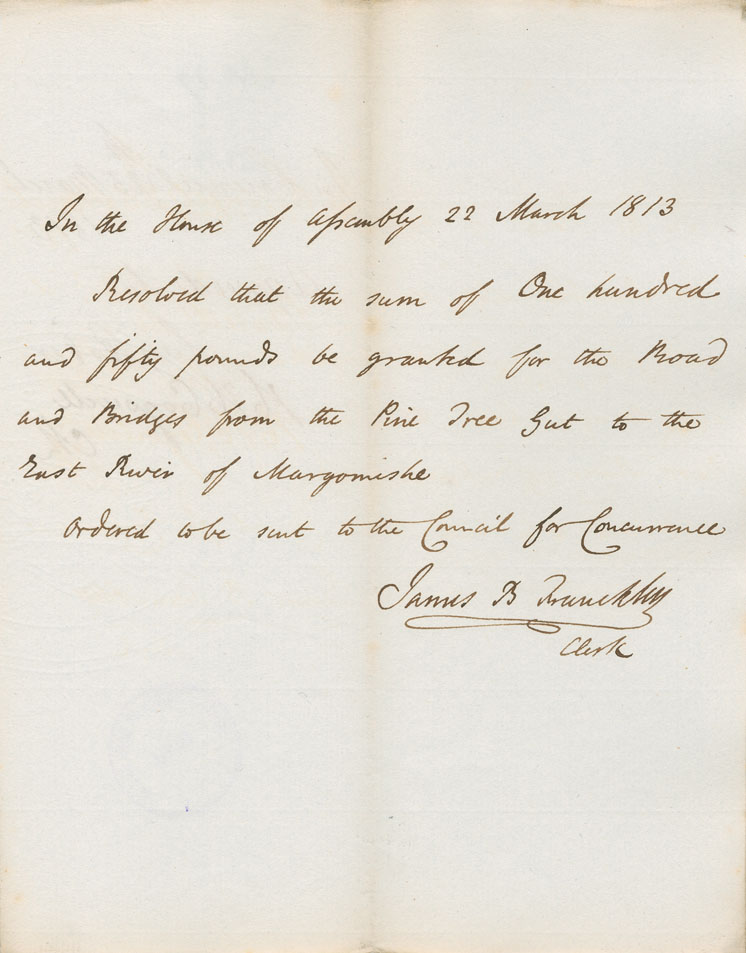 In the House of Assembly 22 March 1813
Resolved that the sum of One hundred
and fifty pounds be granted for the Road
and Bridges from the Pine Tree Gut to the
East River of Margomishe
Ordered to be sent to the Council for Concurrence
James B Franckly
Clerk